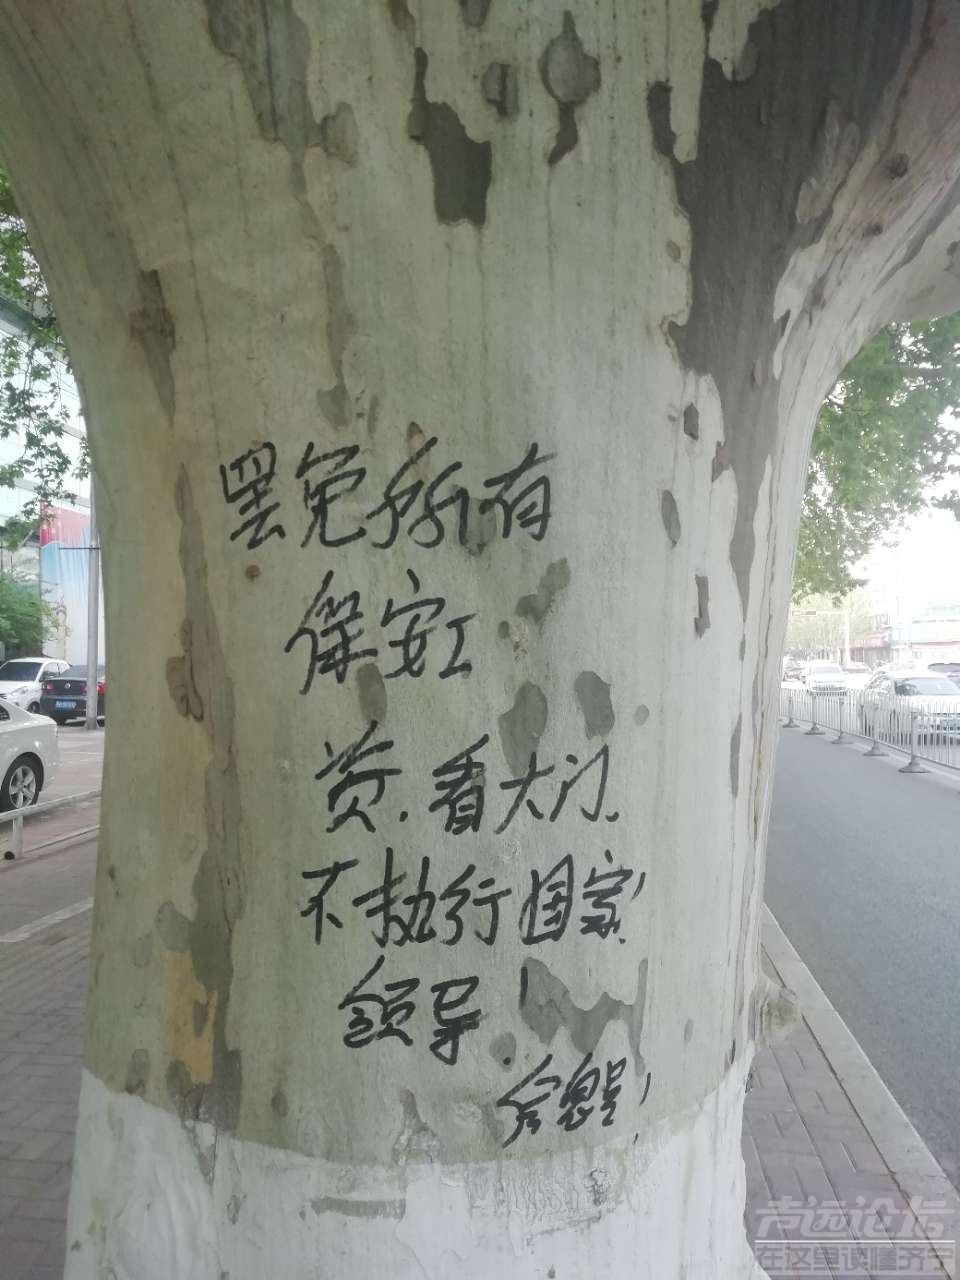 罢免所有
保安工
贡.看大门.
不执行国家!
领导!
声远论坛
在这里读懂济宁